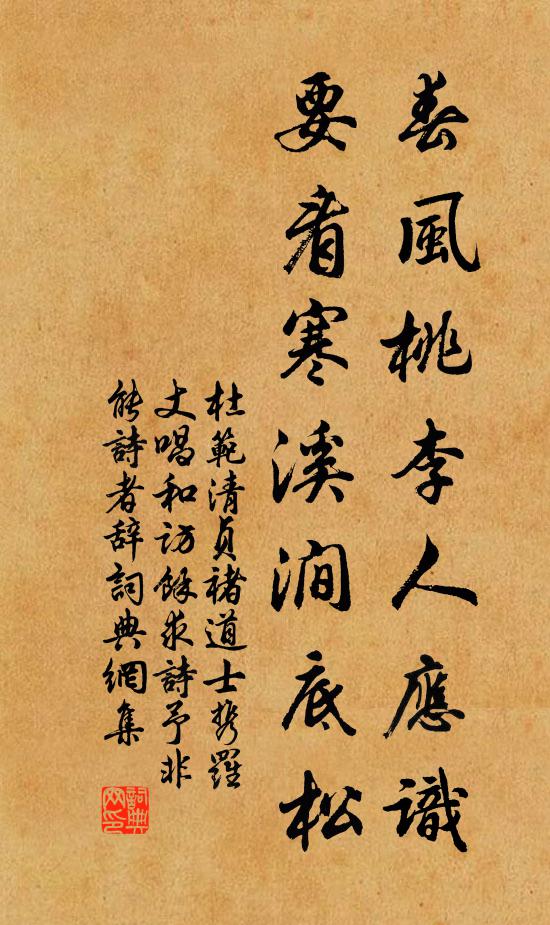 春風桃李人應識
要看寒溪澗底松
杜範清貞褚道士携羅
丈唱和訪餘求詩予非
能詩者辞詞典網集
詞典網印